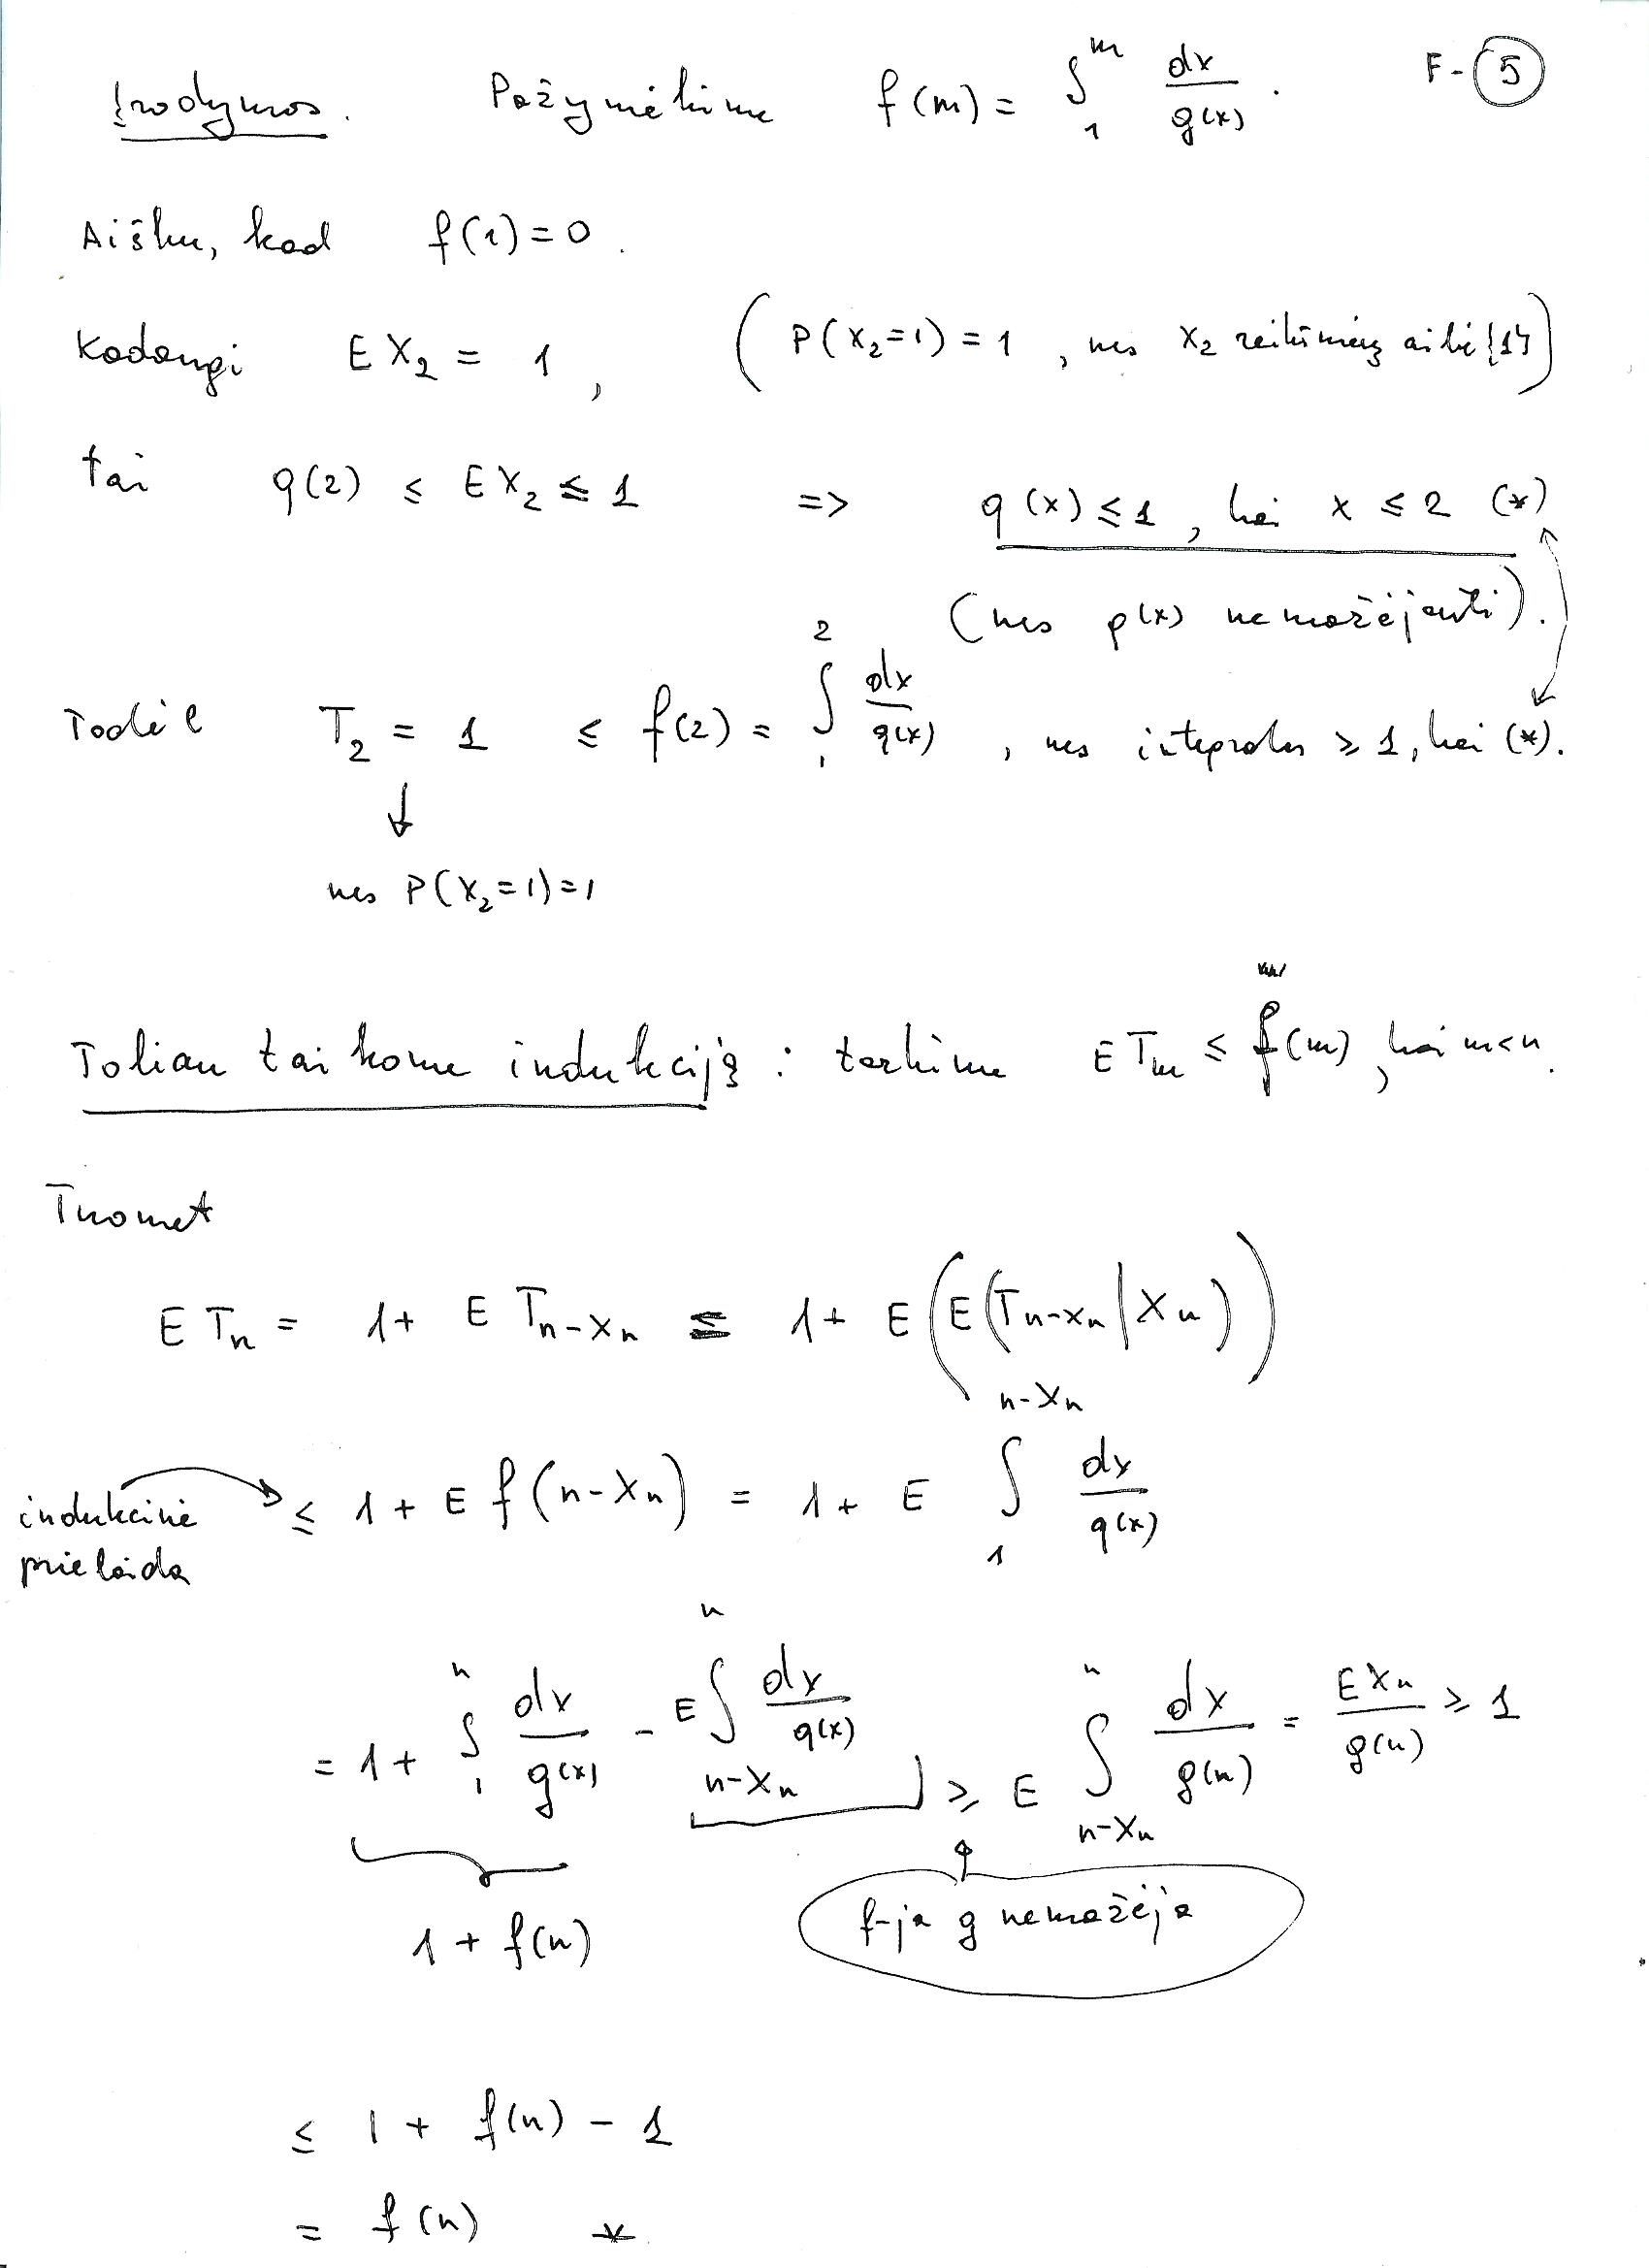 Įrodymas. Pažymėkime f(m) = ∫₁ᵐ dx/g(x). F-⑤
Aišku, kad f(1)=0.
Kadangi EX₂ = 1, (P(X₂=1) = 1, nes X₂ reikšmių aibė {1})
tai g(2) ≤ EX₂ ≤ 1 => g(x) ≤ 1, kai x ≤ 2 (*)
(nes g(x) nemažėjanti).
Todėl T₂ = 1 ≤ f(2) = ∫₁² dx/g(x), nes integralas ≥ 1, kai (*).
↓
nes P(X₂=1)=1
Toliau taikome indukciją: tarkime E Tₘ ≤ f(m), kai m<n.
Tuomet
E Tₙ = 1 + E Tₙ₋Xₙ ≤ 1 + E(E(Tₙ₋Xₙ | Xₙ))
indukcinė prielaida → ≤ 1 + E f(n-Xₙ) = 1 + E ∫₁ⁿ⁻ˣⁿ dx/g(x)
= 1 + ∫₁ⁿ dx/g(x) - E ∫ₙ₋Xₙⁿ dx/g(x) ≥ E ∫ₙ₋Xₙⁿ dx/g(n) = EXₙ/g(n) ≥ 1
1 + f(n) f-ja g nemažėja
≤ 1 + f(n) - 1
= f(n) *